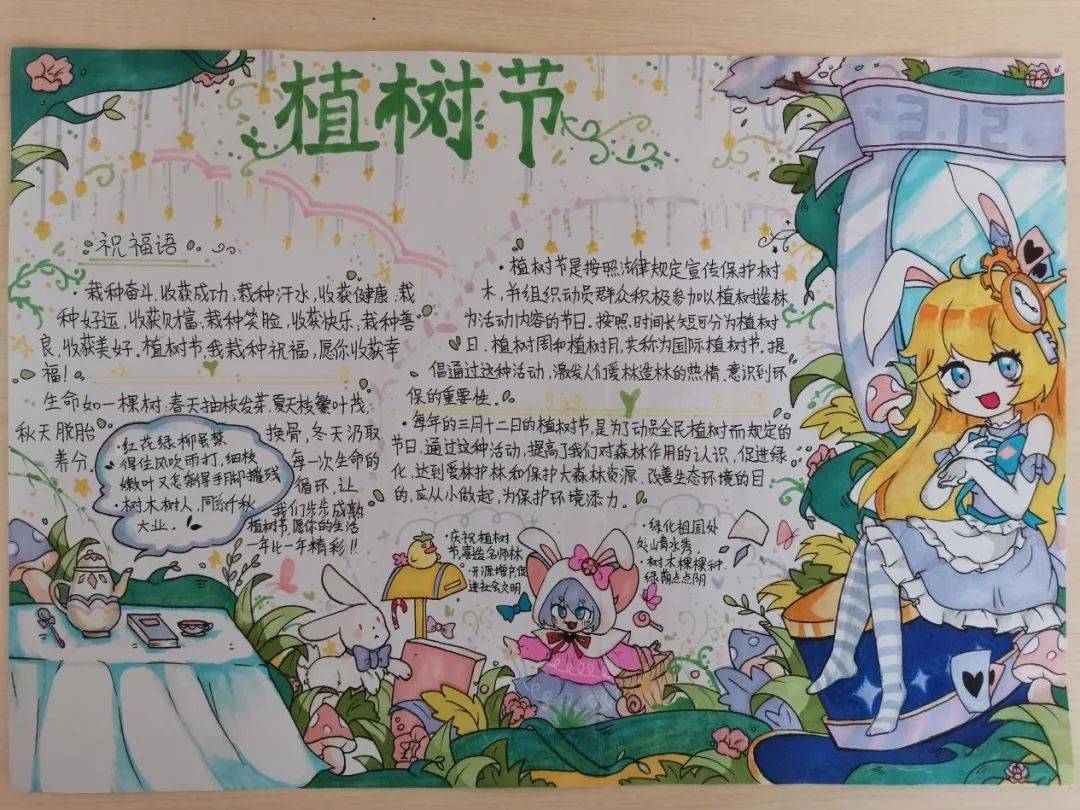 植树节
祝福语
·栽种奋斗,收获成功,栽种汗水,收获健康,栽
种好运,收获财富,栽种笑脸,收获快乐,栽种善
良,收获美好。植树节我栽种祝福,愿你收获幸
福!
生命如一棵树:春天抽枝发芽,夏天枝繁叶茂,
秋天脱胎换骨,冬天汲取
养分,每一次生命的
循环,让
我们步步成熟
植树节,愿你的生活
一年比一年精彩!!
·红花绿柳虽禁
得住风吹雨打,细枝
嫩叶又怎剩得手脚摧残
·树木树人,同纺千秋
大业。
·植树节是按照法律规定宣传保护树
木,并组织动员群众积极参加以植树造林
为活动内容的节日。按照时间长短可分为植树
日、植树周和植树月,共称为国际植树节。提
倡通过这种活动,激发人们爱林造林的热情、意识到环
保的重要性。
·每年的三月十二日的植树节,是为了动员全民植树而规定的
节日。通过这种活动,提高了我们对森林作用的认识,促进绿
化,达到爱林护林和保护大森林资源、改善生态环境的目
的,应从小做起,为保护环境添力。
·庆祝植树
节,喜造名师林
·开源增产,促
进社会文明
·绿化祖国处
处山青水秀,
·树木棵棵种
绿荫点点阴